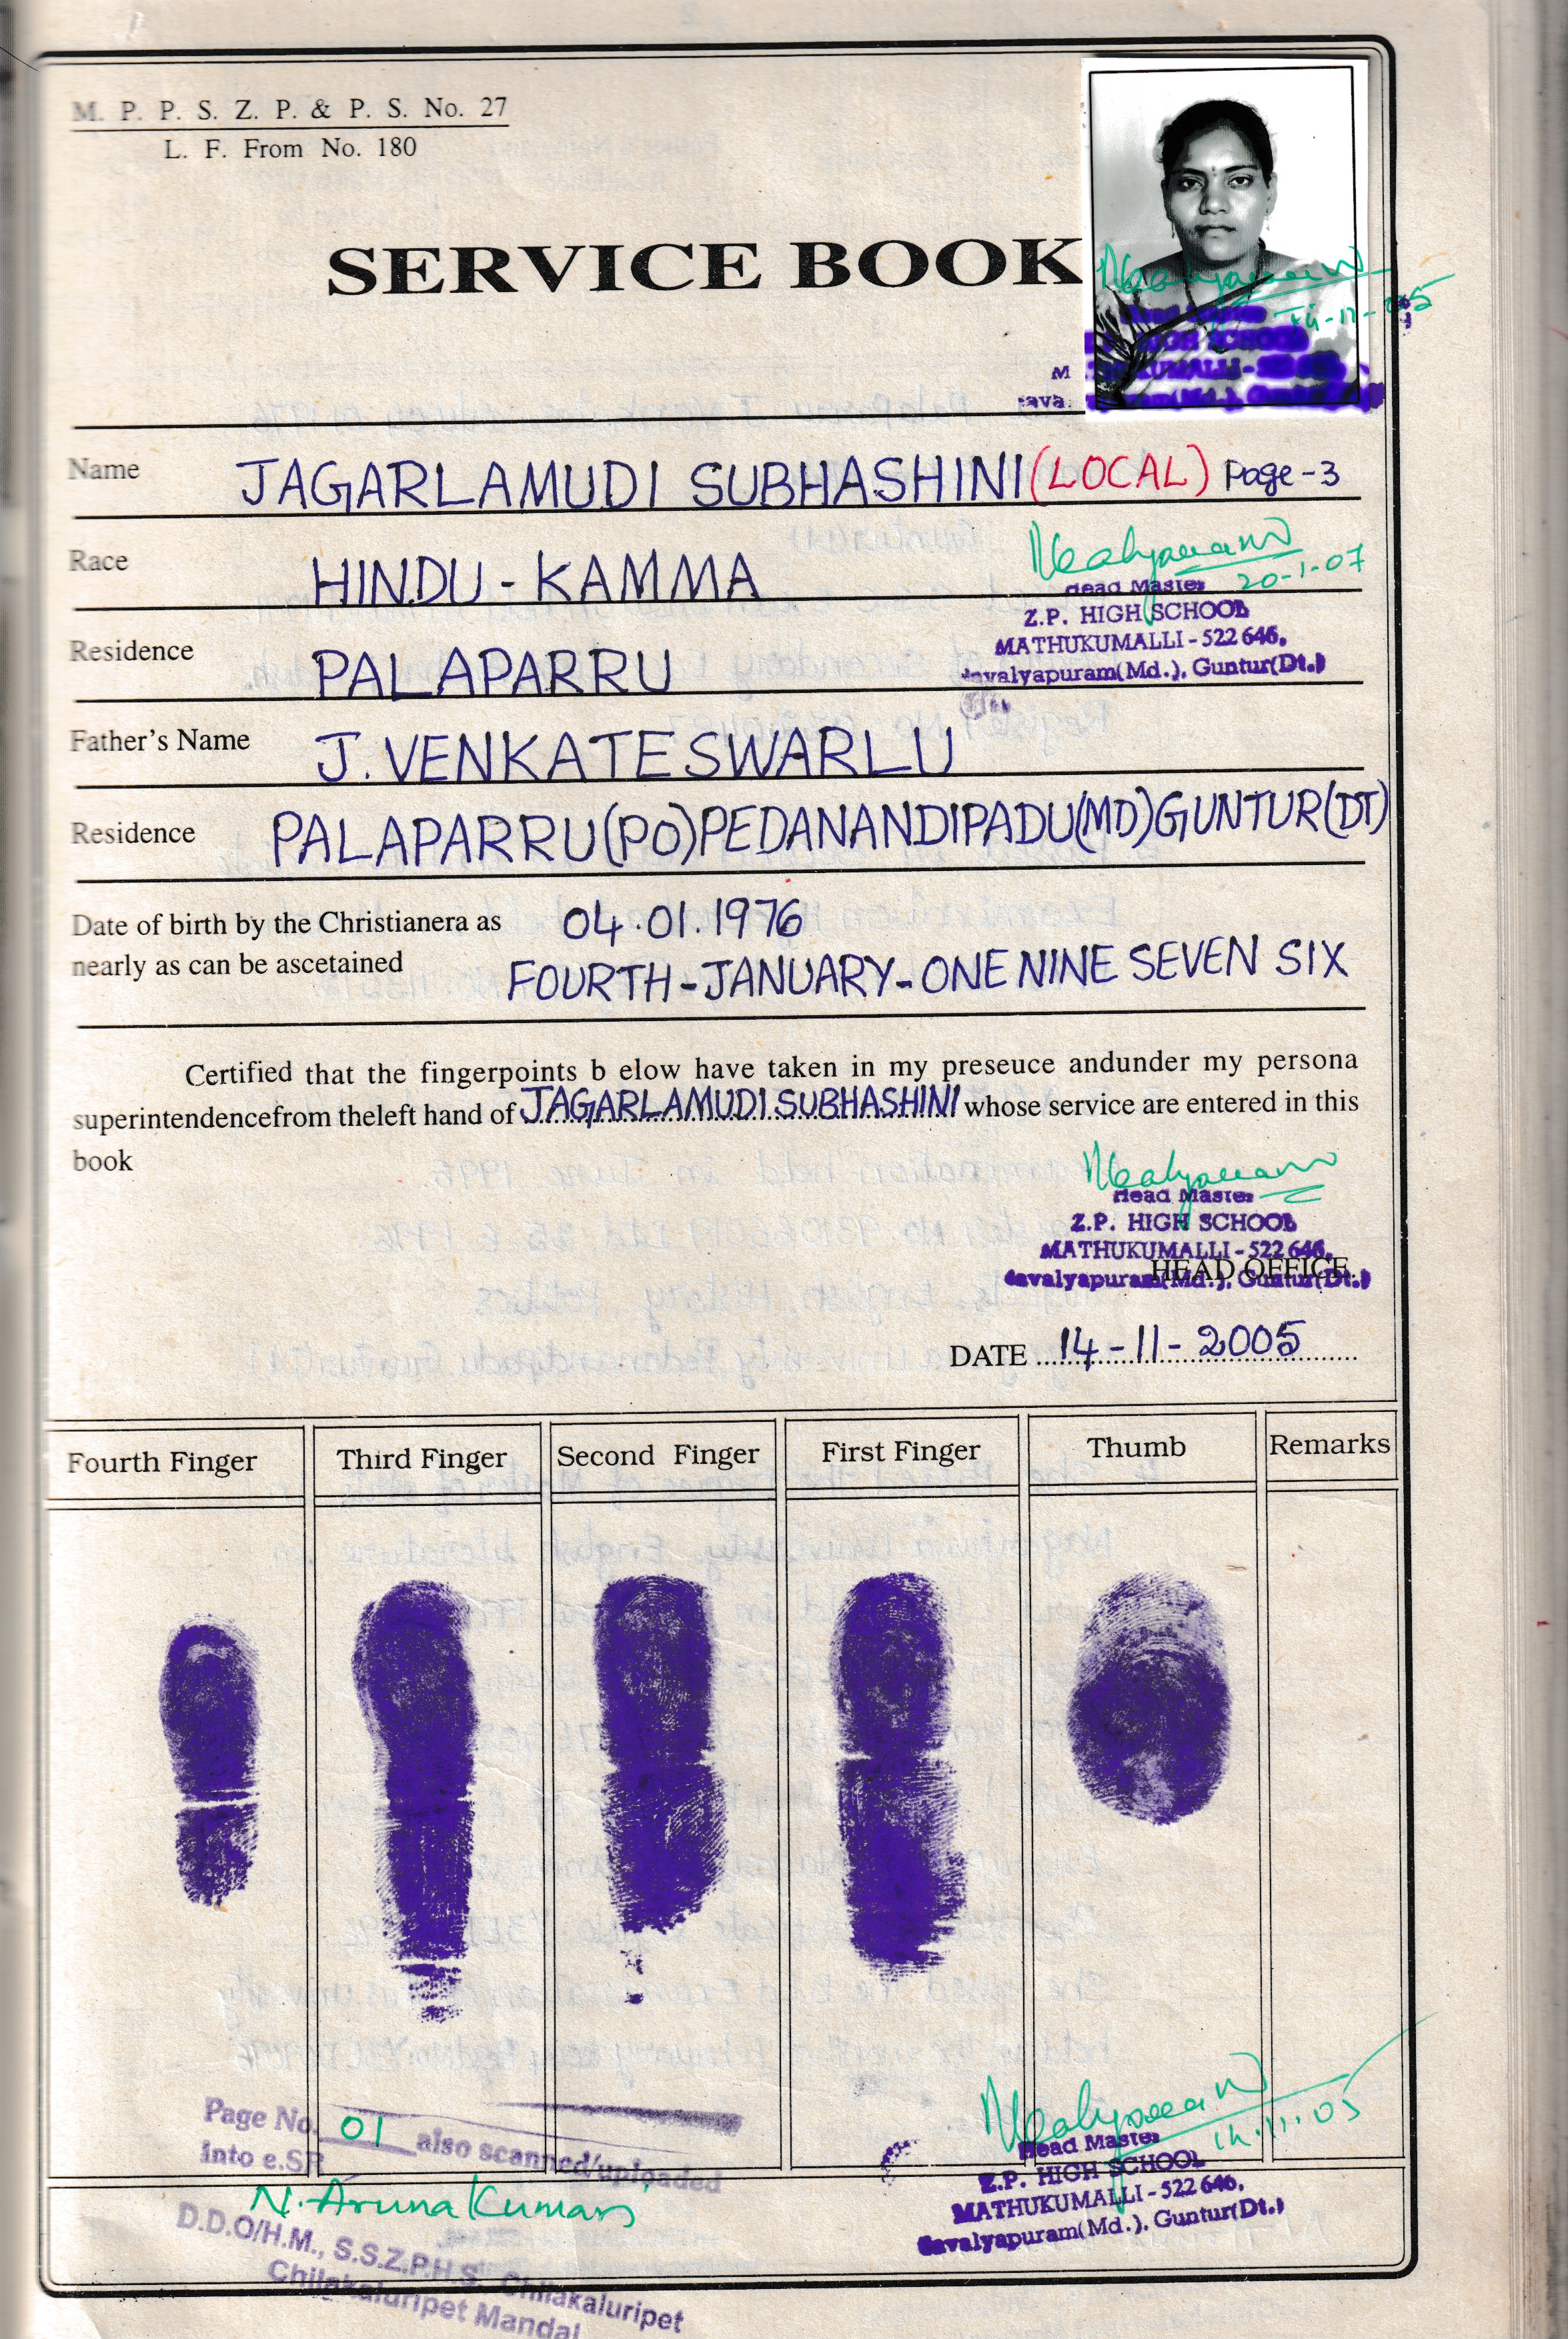 M. P. P. S. Z. P. & P. S. No. 27
L. F. From No. 180
SERVICE BOOK
Name JAGARLAMUDI SUBHASHINI (LOCAL) Page-3
Race HINDU - KAMMA
20-1-07
Head Master
Z.P. HIGH SCHOOL
MATHUKUMALLI - 522 646,
Residence PALAPARRU
avalyapuram(Md.), Guntur(Dt.)
Father's Name J. VENKATESWARLU
Residence PALAPARRU(PO)PEDANANDIPADU(MD)GUNTUR(DT)
Date of birth by the Christianera as 04.01.1976
nearly as can be ascetained FOURTH-JANUARY-ONE NINE SEVEN SIX
Certified that the fingerpoints b elow have taken in my preseuce andunder my persona
superintendencefrom theleft hand of JAGARLAMUDI SUBHASHINI whose service are entered in this
book
Head Master
Z.P. HIGH SCHOOL
MATHUKUMALLI - 522 646,
HEAD OFFICE
avalyapuram(Md.), Guntur(Dt.)
DATE 14-11-2005
Fourth Finger Third Finger Second Finger First Finger Thumb Remarks
Page No. 01 also scanned/uploaded
into e.SR
N. Aruna Kumari
D.D.O/H.M., S.S.Z.P.H.S. Chilakaluripet
Chilakaluripet Mandal
14.11.05
Head Master
Z.P. HIGH SCHOOL
MATHUKUMALLI - 522 646,
Savalyapuram(Md.), Guntur(Dt.)